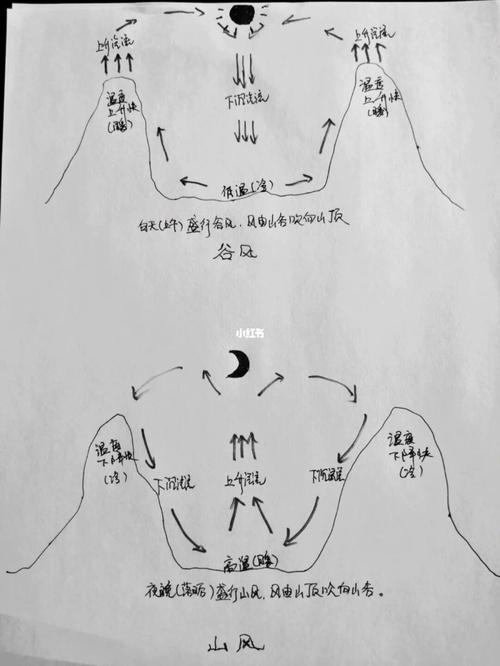 上升气流
上升气流
下沉气流
温度
上升快
(暖)
温度
上升快
(暖)
低温(冷)
白天(上午)盛行谷风,风由山谷吹向山顶
谷风
小红书
温度
下降快
(冷)
温度
下降快
(冷)
下沉气流
上升气流
下沉气流
高温(暖)
夜晚(落后)盛行山风,风由山顶吹向山谷。
山风